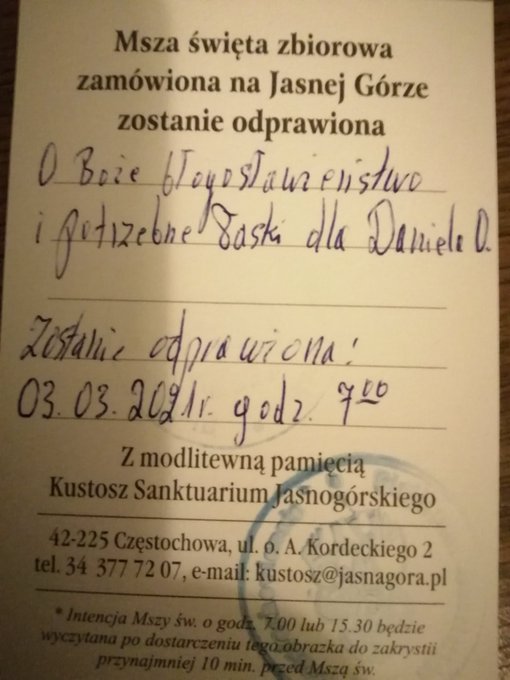 Msza święta zbiorowa
zamówiona na Jasnej Górze
zostanie odprawiona
O Boże błogosławieństwo
i potrzebne łaski dla Daniela O.
Zostanie odprawiona:
03.03.2021r. godz. 700
Z modlitewną pamięcią
Kustosz Sanktuarium Jasnogórskiego
42-225 Częstochowa, ul. o. A. Kordeckiego 2
tel. 34 377 72 07, e-mail: kustosz@jasnagora.pl
* Intencja Mszy św. o godz. 7.00 lub 15.30 będzie
wyczytana po dostarczeniu tego obrazka do zakrystii
przynajmniej 10 min. przed Mszą św.